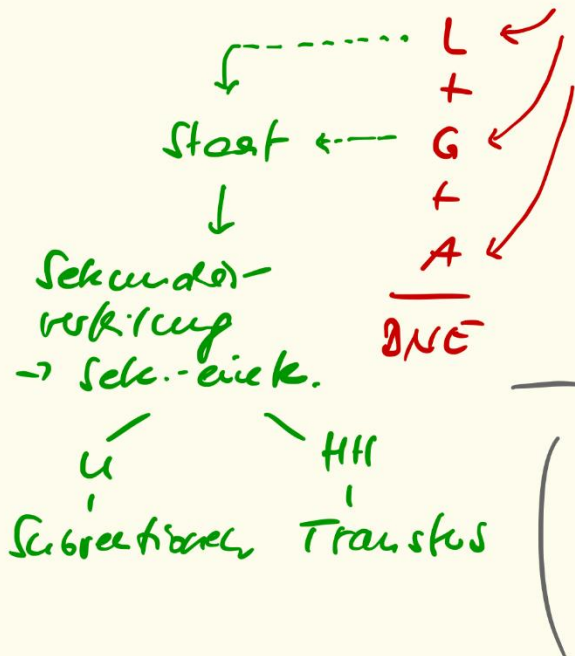 L
+
Staat G
+
A
Sekundär-
verteilung BNE
→ Sek.-eink.
U HH
Subventionen Transfers